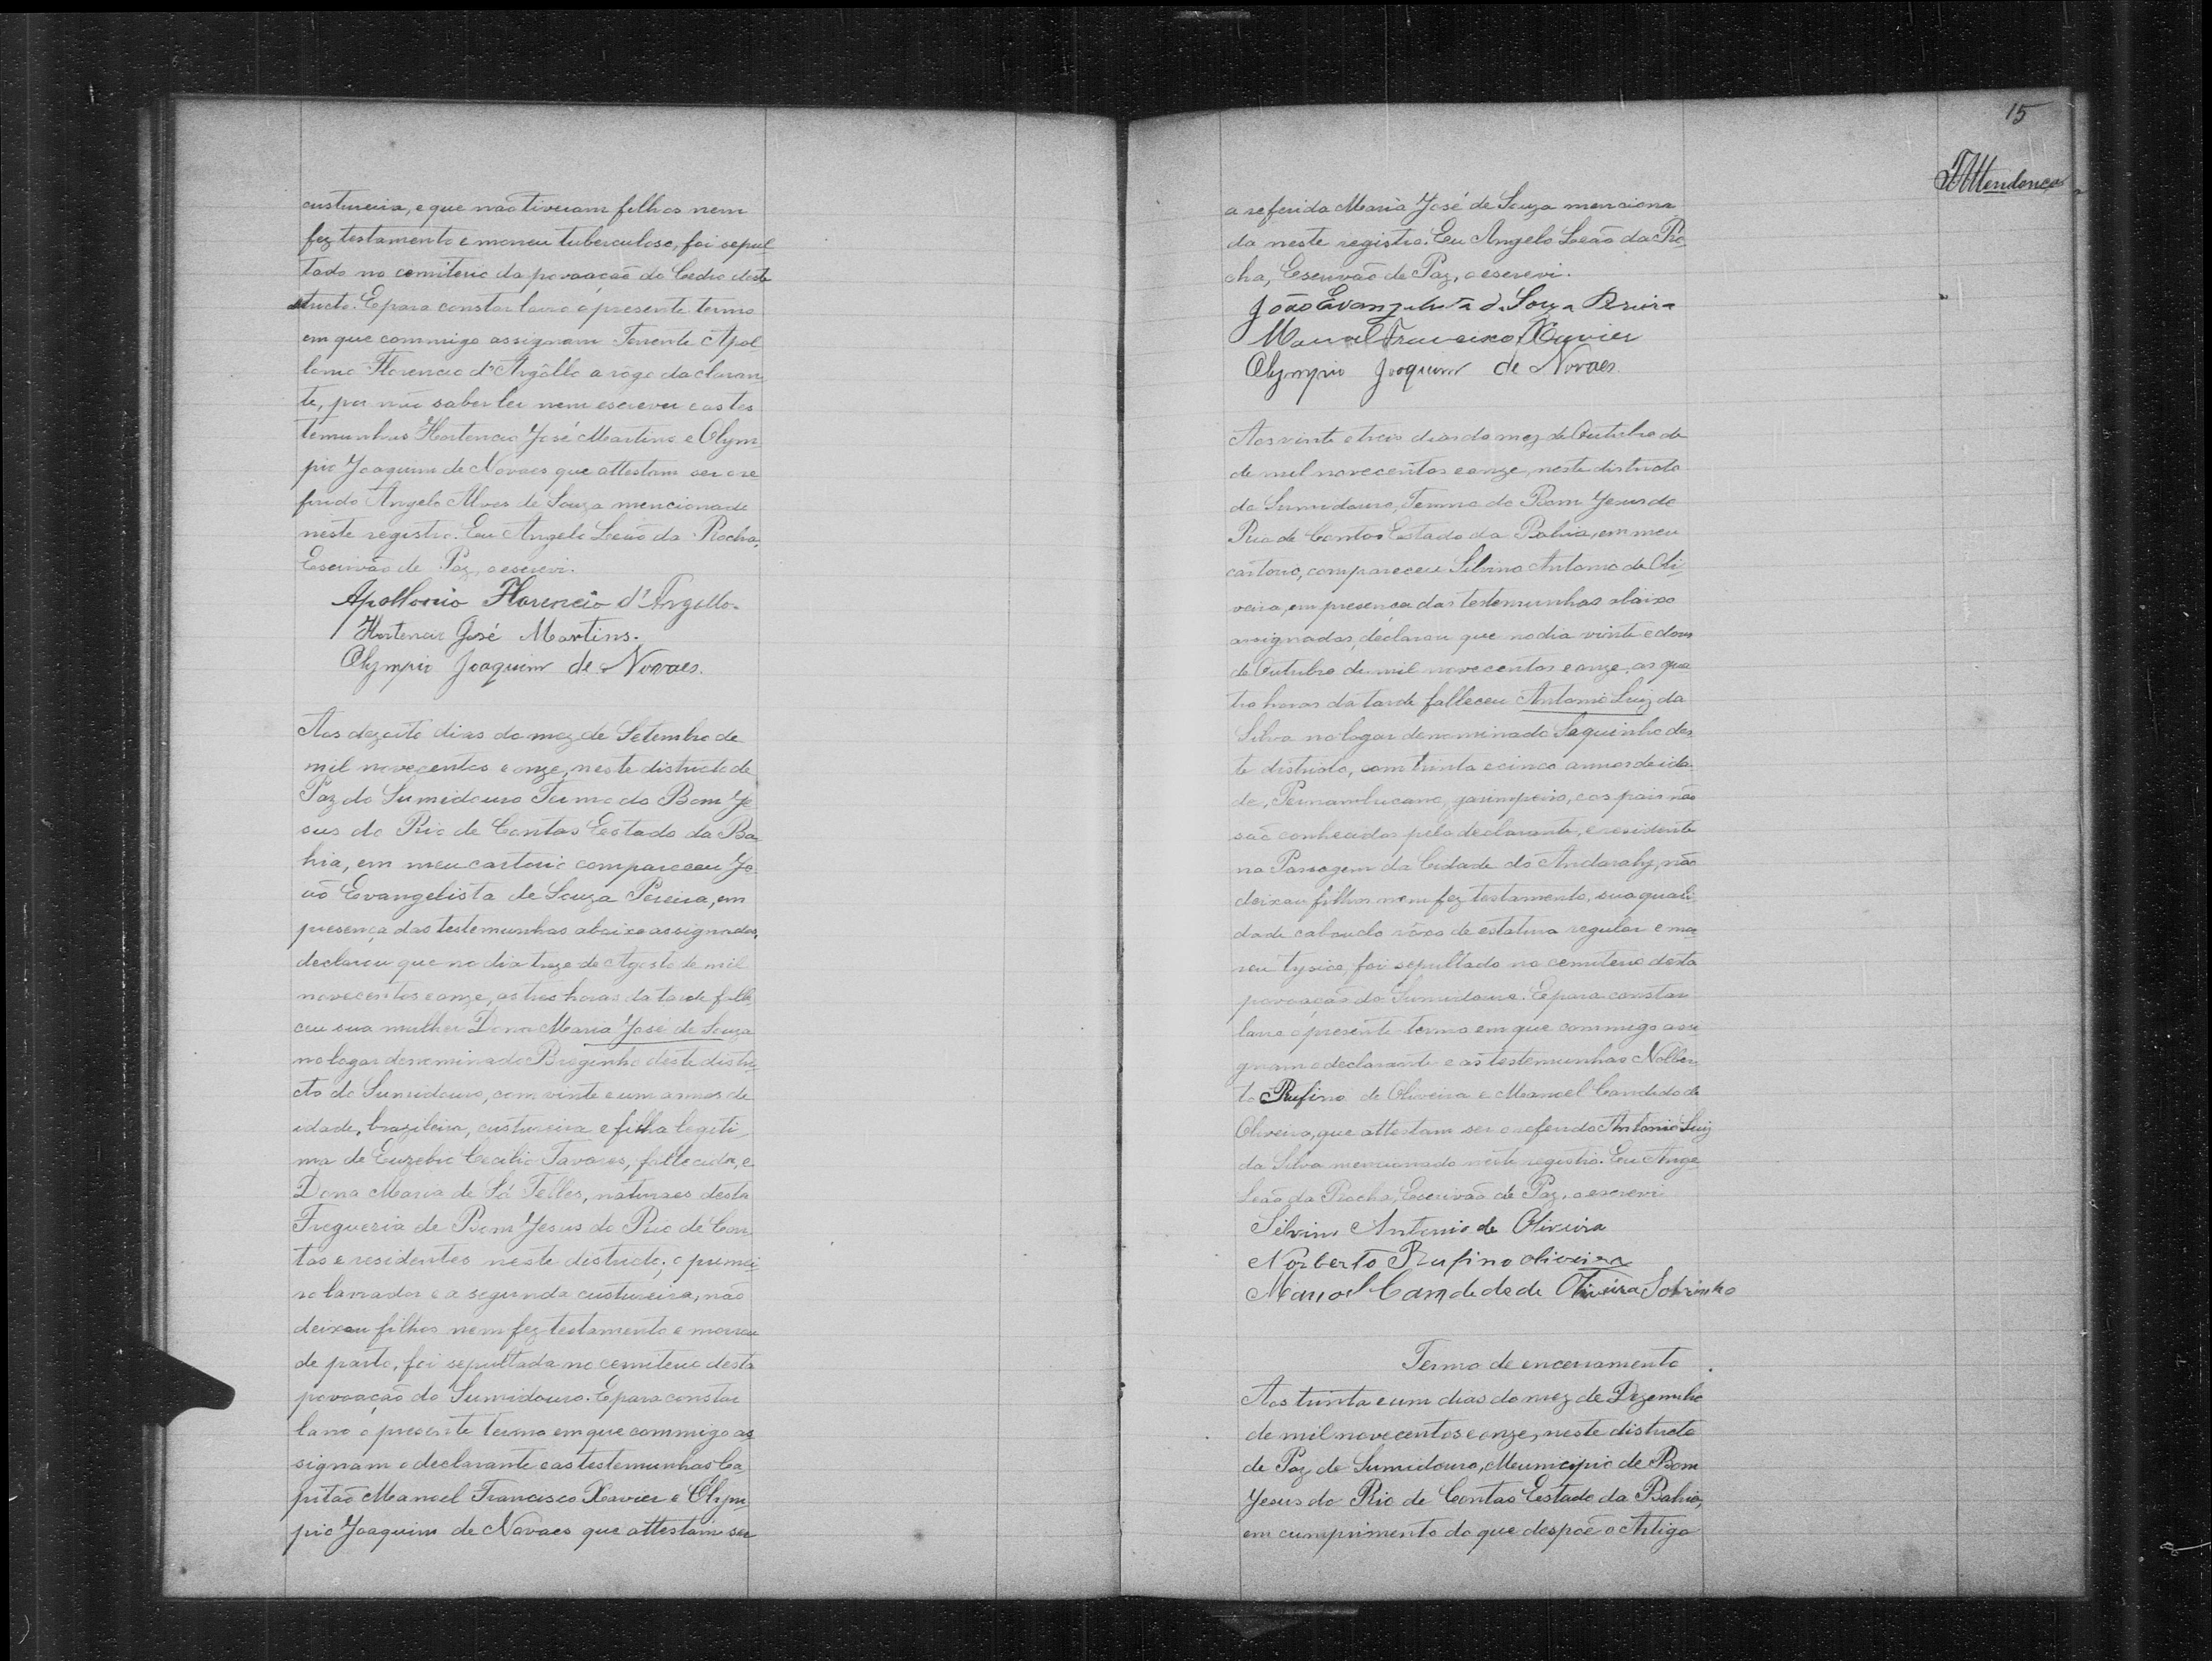 custureira, e que não tiveram filhos nem
fez testamento e morreu tuberculoso, foi sepul
tado no cemiterio da povoação do Cedro deste
districto. E para constar lavro o presente termo
em que commigo assignam Tenente Apol
lonio Florencio d'Argôllo a rôgo da claran
te, por não saber ler nem escrever e as tes
temunhas Hortencio José Martins e Olym
pio Joaquim de Novaes que attestam ser o re
ferido Angelo Alves de Souza mencionado
neste registro. Eu Angelo Leão da Rocha,
Escrivão de Paz, o escrevi.
Apollonio Florencio d'Argollo.
Hortencio José Martins.
Olympio Joaquim de Novaes.
Aos dezoito dias do mez de Setembro de
mil novecentos e onze, neste districto de
Paz do Sumidouro Termo do Bom Je
sus do Rio de Contas Estado da Ba
hia, em meu cartorio compareceu Jo
ão Evangelista de Souza Pereira, em
presença das testemunhas abaixo assignadas,
declarou que no dia treze de Agosto de mil
novecentos e onze, as tres horas da tarde falle
ceu sua mulher Dona Maria José de Souza
no logar denominado Breginho deste distri
cto do Sumidouro, com vinte e um annos de
idade, brazileira, custureira e filha legiti
ma de Euzebio Cecilio Tavares, fallecido, e
Dona Maria de Sá Telles, naturaes desta
Freguezia de Bom Jesus do Rio de Con
tas e residentes neste districto; o primei
ro lavrador e a segunda custureira, não
deixou filhos nem fez testamento e morreu
de parto, foi sepultada no cemiterio desta
povoação do Sumidouro. E para constar
lavro o presente termo em que commigo as
signam o declarante e as testemunhas Ca
pitão Manoel Francisco Xavier e Olym
pio Joaquim de Novaes que attestam ser
15
a referida Maria José de Souza menciona
da neste registro. Eu Angelo Leão da Ro
cha, Escrivão de Paz, o escrevi.
João Evangelista d. Souza Pereira
Manoel Francisco Xavier
Olympio Joaquim de Novaes
Aos vinte e treis dias do mez de Outubro de
de mil novecentos e onze, neste districto
do Sumidouro, Termo do Bom Jesus do
Rio de Contas Estado da Bahia, em meu
cartorio, compareceu Silvino Antonio de Oli
veira, em presença das testemunhas abaixo
assignadas, declarou que no dia vinte e dous
de Outubro de mil novecentos e onze, as qua
tro horas da tarde falleceu Antonio Luiz da
Silva no logar denominado Saquinho des
te districto, com trinta e cinco annos de ida
de, Pernambucano, garimpeiro, e os pais não
são conhecidos pelo declarante, e residente
na Passagem da Cidade do Andarahy, não
deixou filhos nem fez testamento, sua quali
dade caboculo rôxo de estatura regular e mo
reu tysico, foi sepultado no cemiterio desta
povoação do Sumidouro. E para constar
lavro o presente termo em que commigo assi
gnam o declarante e as testemunhas Nolber
to Rufino de Oliveira e Manoel Candido de
Oliveira, que attestam ser o referido Antonio Luiz
da Silva mencionado neste registro. Eu Ange
Leão da Rocha, Escrivão de Paz, o escrevi
Silvino Antonio de Oliveira
Norberto Rufino oliveira
Manoel Candido de Oliveira Sobrinho
Termo de encerramento
Aos trinta e um dias do mez de Dezembro
de mil novecentos e onze, neste districto
de Paz de Sumidouro, Meunicipio de Bom
Jesus do Rio de Contas Estado da Bahia,
em cumprimento do que despõe o Artigo